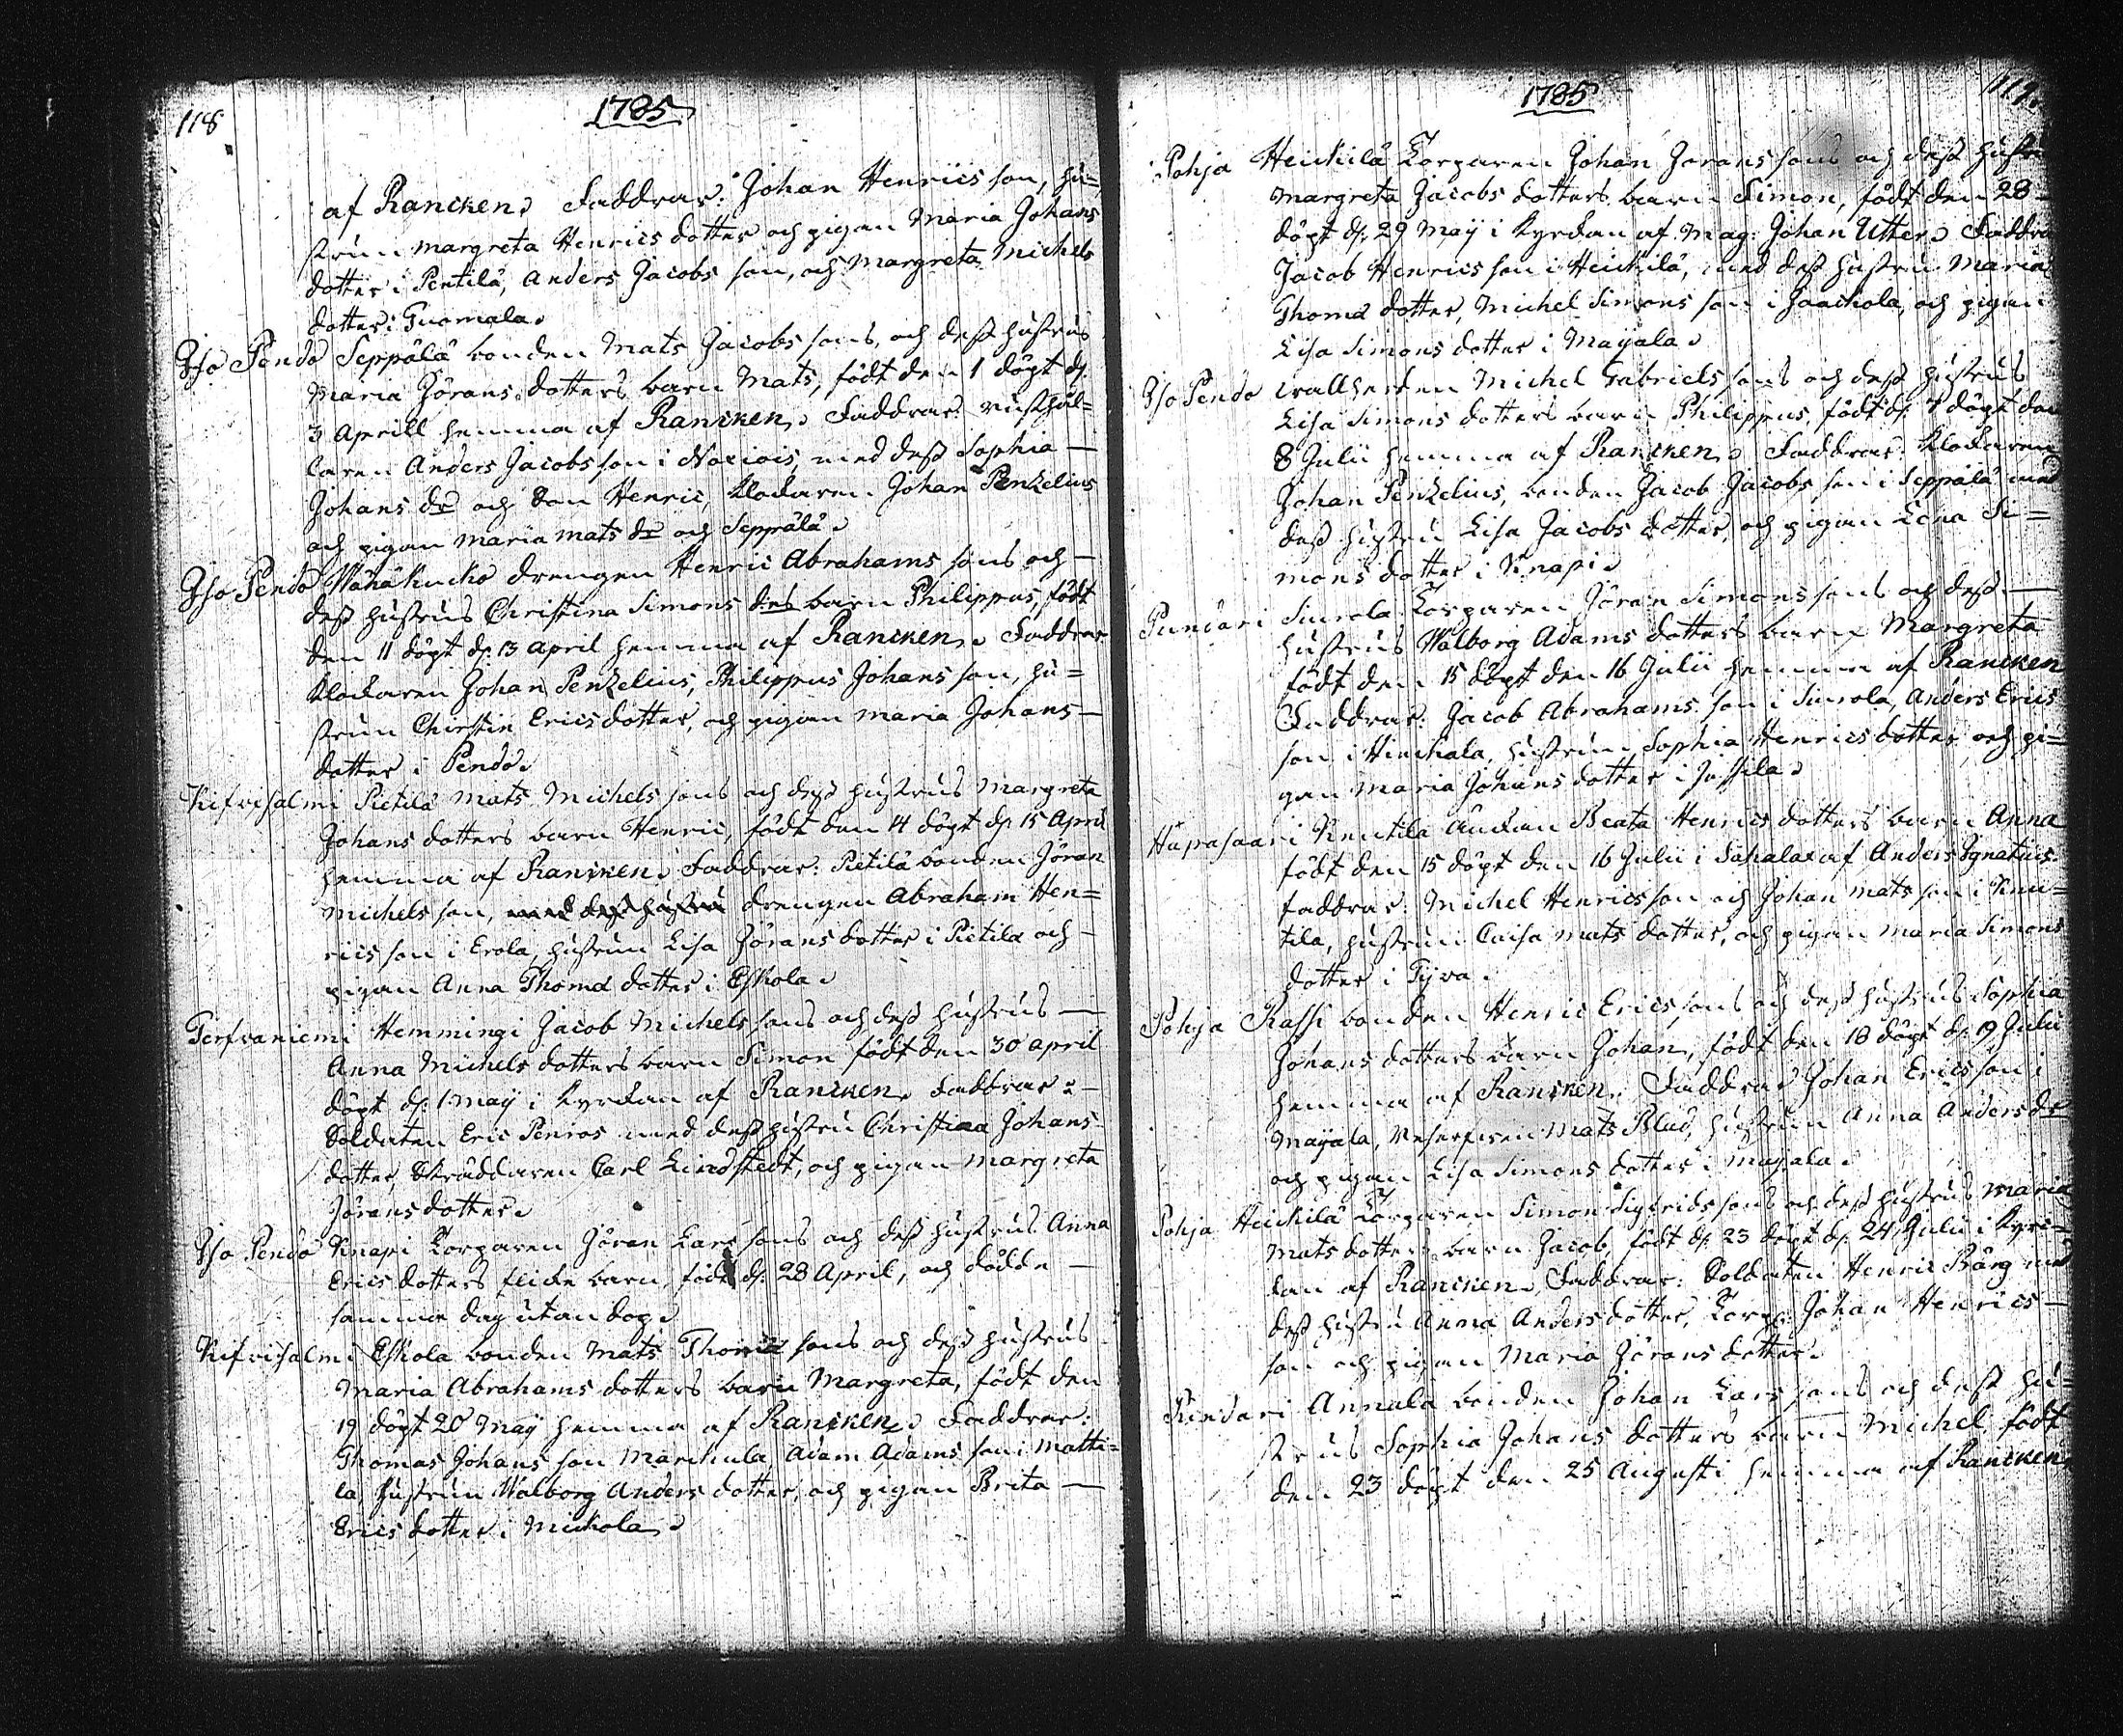 118
1785
af Rancken. Faddrar: Johan Henrics son, hu=
strun Margreta Henrics dotter och pigan Maria Johans
dotter i Pentilä, Anders Jacobs son, och Margreta Michels
dotter i Tuomala.
Iso Pendo Seppälä bonden Mats Jacobs sons, och dess hustrus
Maria Jörans dotters barn Mats, födt den 1 döpt d:
3 Aprill hemma af Rancken. Faddrar: rusthål=
laren Anders Jacobs son i med dess Sophia —
Johans dr och Son Henric, Klockaren Johan Penzelius
och pigan Maria Mats dr och Seppälä.
Iso Pendo Wähäkucko drengen Henric Abrahams sons och —
dess hustrus Christina Simons drs barn Philippus, födt
den 11 döpt d: 13 April hemma af Rancken. Faddrar
Klockaren Johan Penzelius, Philippus Johans son, hu=
strun Chirstin Ericsdotter, och pigan Maria Johans —
dotter i Pendo.
Kifvisalmi Pietilä Mats Michels sons och dess hustrus Margreta
Johans dotters barn Henric, födt den 14 döpt d: 15 April
hemma af Rancken. Faddrar: Pietilä bonden Jöran
Michels son, med dess hustru drengen Abraham Hen=
rics son i Erola, hustrun Lisa Jörans dotter i Pietilä och —
pigan Anna Thomæ dotter i Eskola.
Terfvaniemi Hemmingi Jacob Michels sons och dess hustrus —
Anna Michels dotters barn Simon födt den 30 april
döpt d: 1 may i Kyrckan af Rancken. Faddrar: —
Soldaten Eric Penros med dess hustru Christina Johans
dotter, Skräddaren Carl Lindstedt, och pigan Margreta
Jörans dotter.
Iso Pendo Knapi Torparen Jöran Lars sons och dess hustrus Anna
Erics dotters flicke barn, födt d: 28 April, och dödde —
samma dag utan dop.
Kifvisalmi Eskola bonden Mats Thomæ sons och dess hustrus
Maria Abrahams dotters barn Margreta, födt den
19 döpt 20 May hemma af Rancken. Faddrar:
Thomas Johans son Marckula, Adam Adams son i Matti=
la, hustrun Walborg Anders dotter, och pigan Brita —
Erics dotter i Mickola.
1785
Pohja Heickilä Torparen Johan Jörans sons och dess hustrus
Margreta Jacobs dotters barn Simon, födt den 28 —
döpt d: 29 May i Kyrckan af Mag: Johan Utter. Faddrar
Jacob Henrics son i Heickilä, med dess hustru Maria
Thomæ dotter, Michel Simons son i Jaackola, och pigan
Lisa Simons dotter i Mayala.
Iso Pendo wallherden Michel Gabriels sons och dess hustrus
Lisa Simons dotters barn Philippus, födt d: 7 döpt den
8 Julii hemma af Rancken. Faddrar: Klockaren
Johan Penzelius, bonden Jacob Jacobs son i Seppälä med
dess hustru Lisa Jacobs dotter, och pigan Lena Si=
mons dotter i Knapi.
Pundari Simola Torparen Jöran Simons sons och dess —
hustrus Walborg Adams dotters barn Margreta
födt den 15 döpt den 16 Julii hemma af Rancken
Faddrar: Jacob Abrahams son i Simola, Anders Erics
son i Hinckala, hustrun Sophia Henrics dotter och pi=
gan Maria Johans dotter i Jussila.
Hapasaari Knutila änckan Beata Henrics dotters barn Anna
födt den 15 döpt den 16 Julii i Sakala af Anders Ignatius.
faddrar: Michel Henrics son och Johan Mats son i Knu=
tila, hustrun Caisa Mats dotter, och pigan Maria Simons
dotter i Tyva.
Pohja Kassi bonden Henric Erics sons och dess hustrus Sophia
Johans dotters barn Johan, födt den 18 döpt d: 19 Julii
hemma af Rancken. Faddrar Johan Erics son i
Mayala, Mats Blad, hustrun Anna Anders dr
och pigan Lisa Simons dotter i Mayala.
Pohja Heickilä Torparen Simon Sigfrids sons och dess hustrus Maria
Mats dotters barn Jacob, födt d: 23 döpt d: 24 Julii i Kyrc=
kan af Rancken. Faddrar: Soldaten Henric Bärg med
dess hustru Anna Anders dotter, Torp: Johan Henrics —
son och pigan Maria Jörans dotter.
Pundari Annala bonden Johan Lars sons och dess hu=
strus Sophia Johans dotters barn Michel födt
den 23 döpt den 25 Augusti hemma af Rancken.